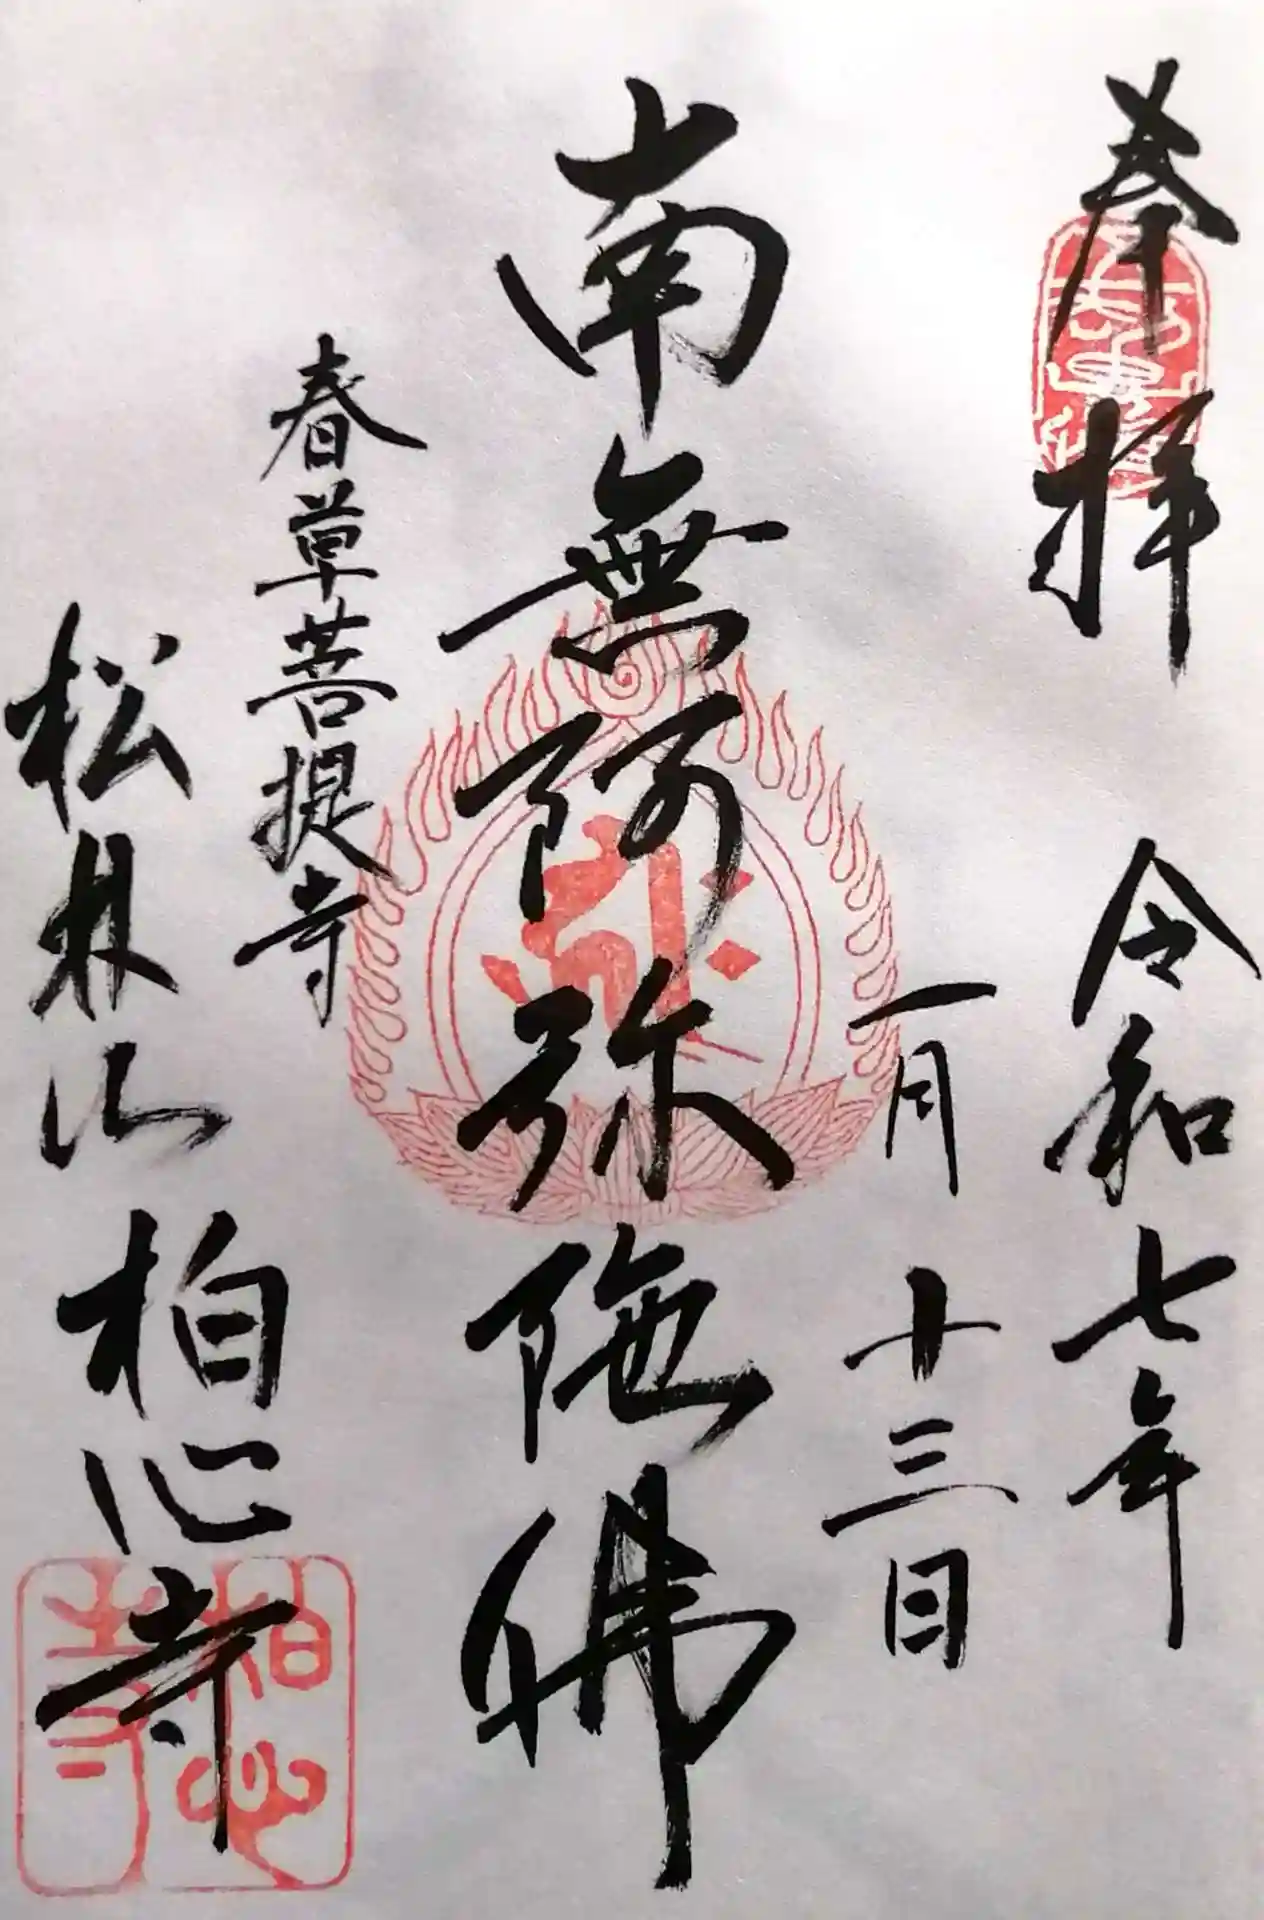 奉拝
令和七年
一月十三日
南無阿弥陁佛
春草菩提寺
松林山柏心寺
柏心寺